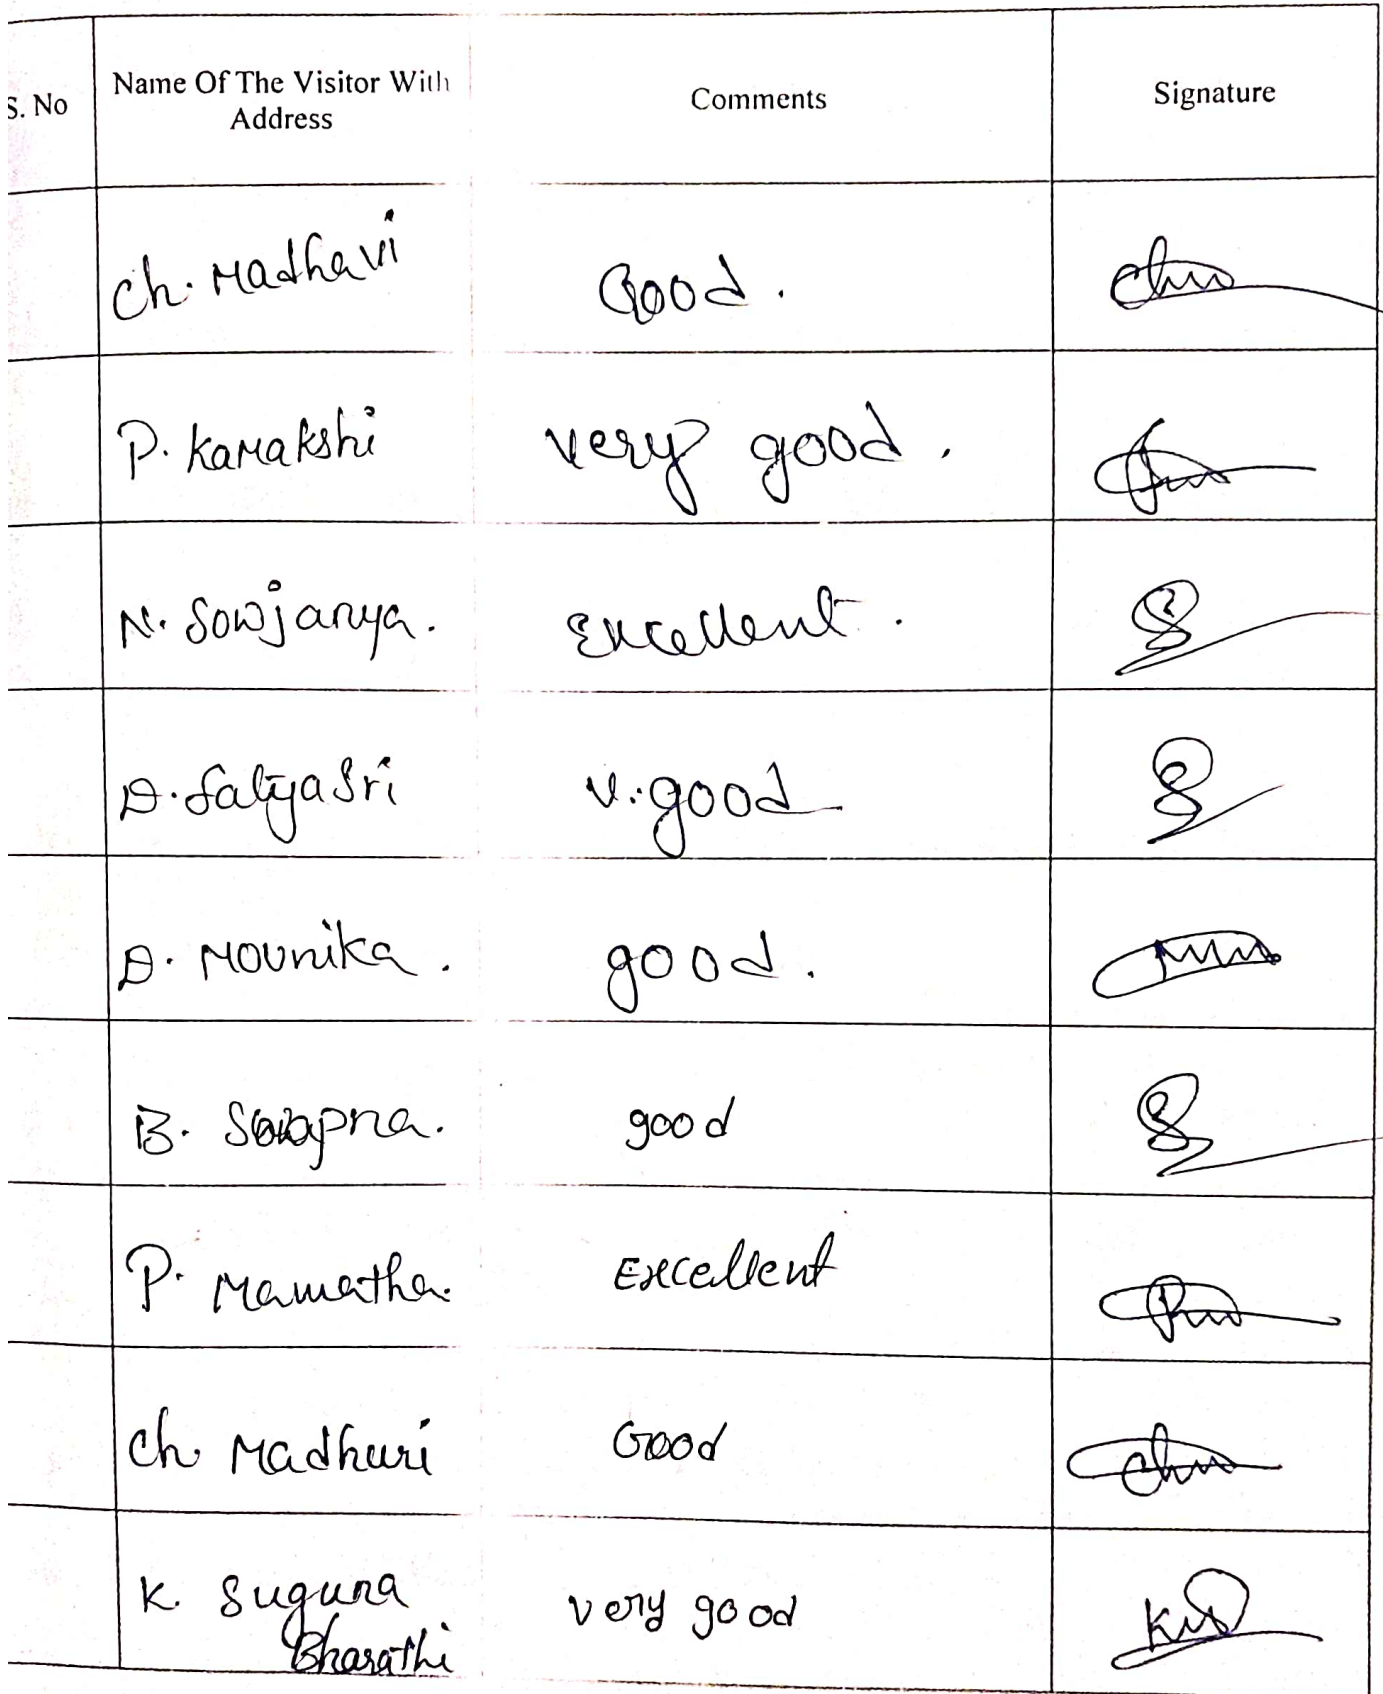 S. No Name Of The Visitor With Address Comments Signature
Ch. Madhavi Good.
P. Kamakshi very good.
N. Sowjanya. Excellent.
D. SatyaSri V. good
D. Mounika. good.
B. Swapna. good
P. Mamatha. Excellent
Ch. Madhuri Good
K. Suguna Bharathi very good